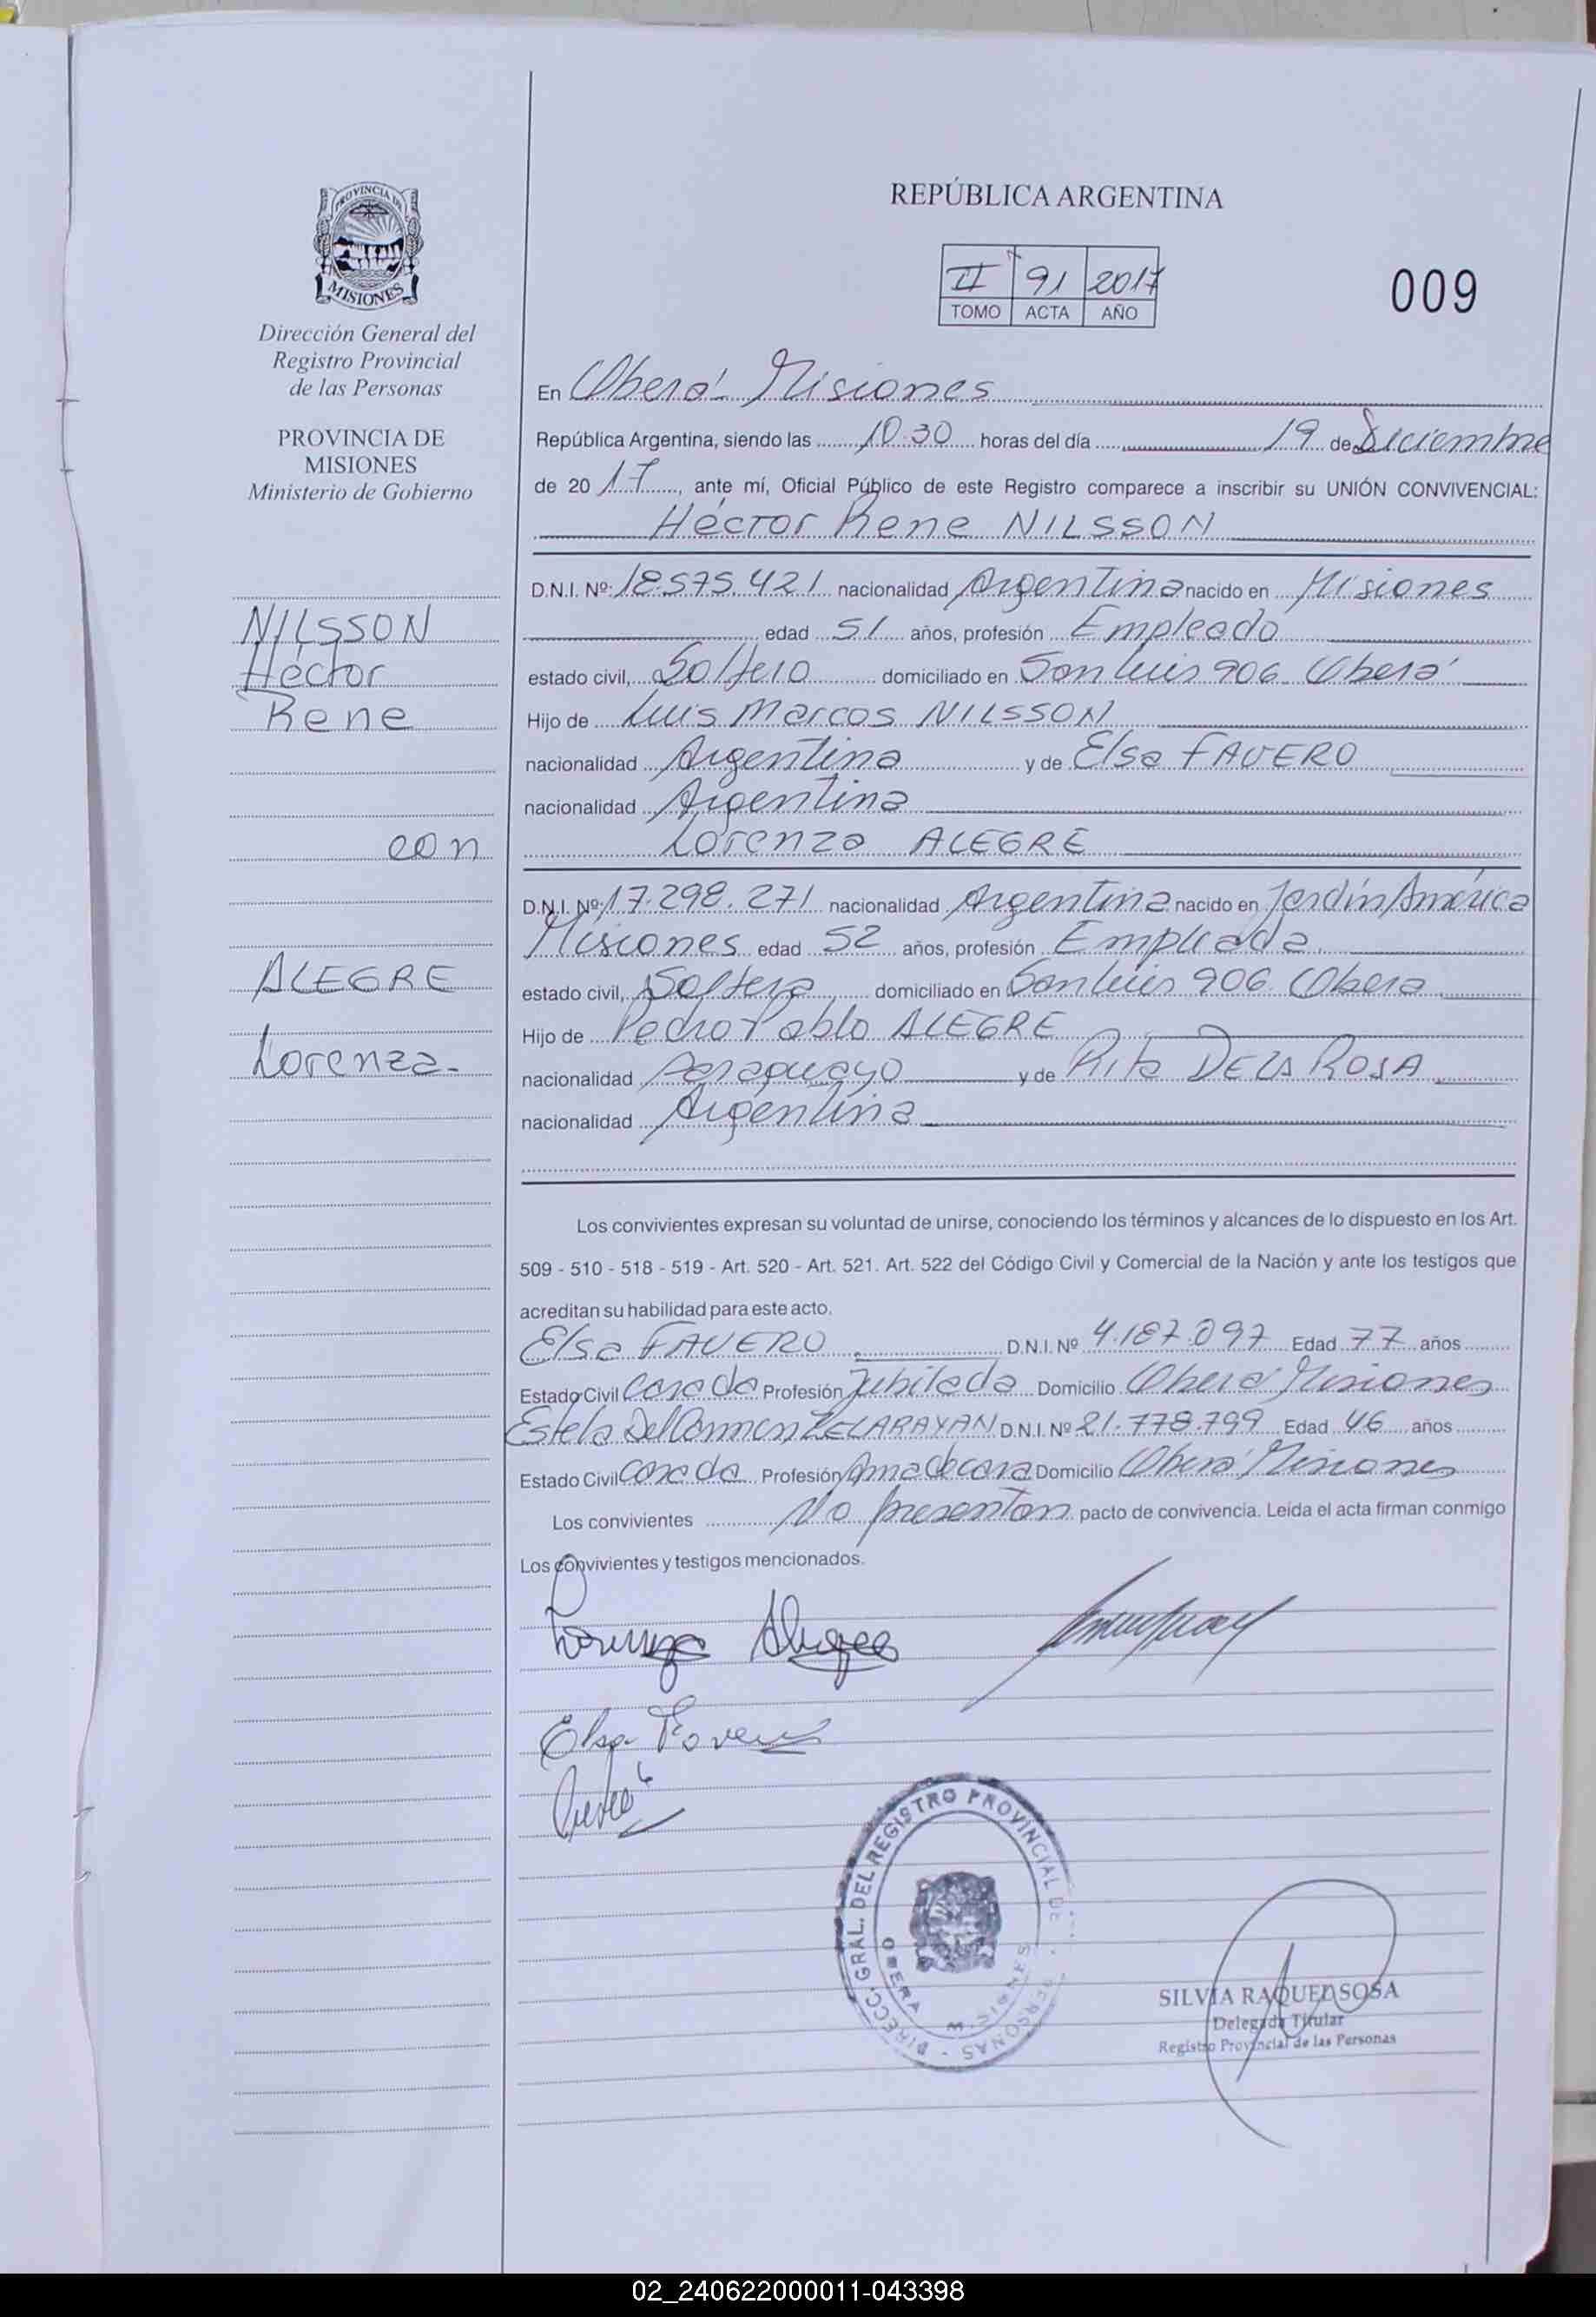 REPÚBLICA ARGENTINA
PROVINCIA DE
MISIONES
II 91 2017
TOMO ACTA AÑO
009
Dirección General del
Registro Provincial
de las Personas
PROVINCIA DE
MISIONES
Ministerio de Gobierno
NILSSON
Héctor
Rene
con
ALEGRE
Lorenza.
En Oberá Misiones
República Argentina, siendo las 10.30 horas del día 19 de Diciembre
de 2017, ante mí, Oficial Público de este Registro comparece a inscribir su UNIÓN CONVIVENCIAL:
Héctor Rene NILSSON
D.N.I. Nº: 18.575.421 nacionalidad Argentina nacido en Misiones
edad 51 años, profesión Empleado
estado civil, Soltero domiciliado en San Luis 906 Oberá
Hijo de Luis Marcos NILSSON
nacionalidad Argentina y de Elsa FAVERO
nacionalidad Argentina
Lorenza ALEGRE
D.N.I. Nº: 17.298.271 nacionalidad Argentina nacido en Jardín América
Misiones edad 52 años, profesión Empleada
estado civil, Soltera domiciliado en San Luis 906 Obera
Hijo de Pedro Pablo ALEGRE
nacionalidad Paraguayo y de Rita DE LA ROSA
nacionalidad Argentina
Los convivientes expresan su voluntad de unirse, conociendo los términos y alcances de lo dispuesto en los Art.
509 - 510 - 518 - 519 - Art. 520 - Art. 521. Art. 522 del Código Civil y Comercial de la Nación y ante los testigos que
acreditan su habilidad para este acto.
Elsa FAVERO D.N.I. Nº 4.187.097 Edad 77 años
Estado Civil Casada Profesión Jubilada Domicilio Oberá Misiones
Estela Del Carmen ZELARAYAN D.N.I. Nº 21.778.799 Edad 46 años
Estado Civil Casada Profesión Ama de casa Domicilio Oberá Misiones
Los convivientes No presentan pacto de convivencia. Leída el acta firman conmigo
Los convivientes y testigos mencionados.
Lorenza Alegre
Elsa Favero
DIRECC. GRAL. DEL REGISTRO PROVINCIAL DE PERSONAS
OBERA MISIONES
SILVIA RAQUEL SOSA
Delegada Titular
Registro Provincial de las Personas
02_240622000011-043398